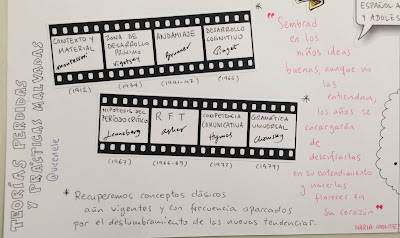 TEORÍAS PERDIDAS
Y PRÁCTICAS MALVADAS
@vicenele
CONTEXTO Y
MATERIAL
Montessori
(1912)
ZONA DE
DESARROLLO
PRÓXIMO
Vigotsky
(1934)
ANDAMIAJE
Bruner
DESARROLLO
COGNITIVO
Piaget
(1966)
HIPÓTESIS DEL
PERÍODO CRÍTICO
Lenneberg
(1967)
RFT
asher
(1966-69)
COMPETENCIA
COMUNICATIVA
Hymes
(1972)
GRAMÁTICA
UNIVERSAL
Chomsky
(1979)
* Recuperemos conceptos clásicos
aún vigentes y con frecuencia aparcados
por el deslumbramiento de las nuevas tendencias.
"Sembrad
en los
niños ideas
buenas, aunque no
las
entiendan,
los años se
encargarán
de
descifrarlas
en su entendimiento
y hacerlas
florecer en
su corazón"
MARIA MONTES
ESPAÑOL A
Y ADOLES